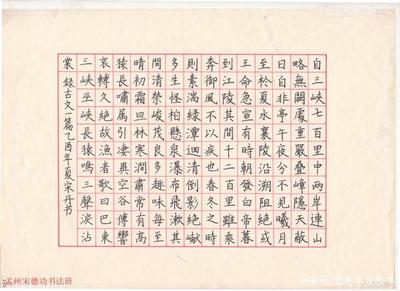 自三峽七百里中兩岸連山
略無闕處重巖疊嶂隱天蔽
日自非亭午夜分不見曦月
至於夏水襄陵沿溯阻絕或
王命急宣有時朝發白帝暮
到江陵其間千二百里雖乘
奔御風不以疾也春冬之時
則素湍綠潭迴清倒影絕巘
多生怪柏懸泉瀑布飛漱其
間清榮峻茂良多趣味每至
晴初霜旦林寒澗肅常有高
猿長嘯属引淒異空谷傳響
哀轉久絕故漁者歌曰巴東
三峽巫峽長猿鳴三聲淚沾
裳 錄古文一篇乙酉年夏宋丹书
孟州宋德功书法班